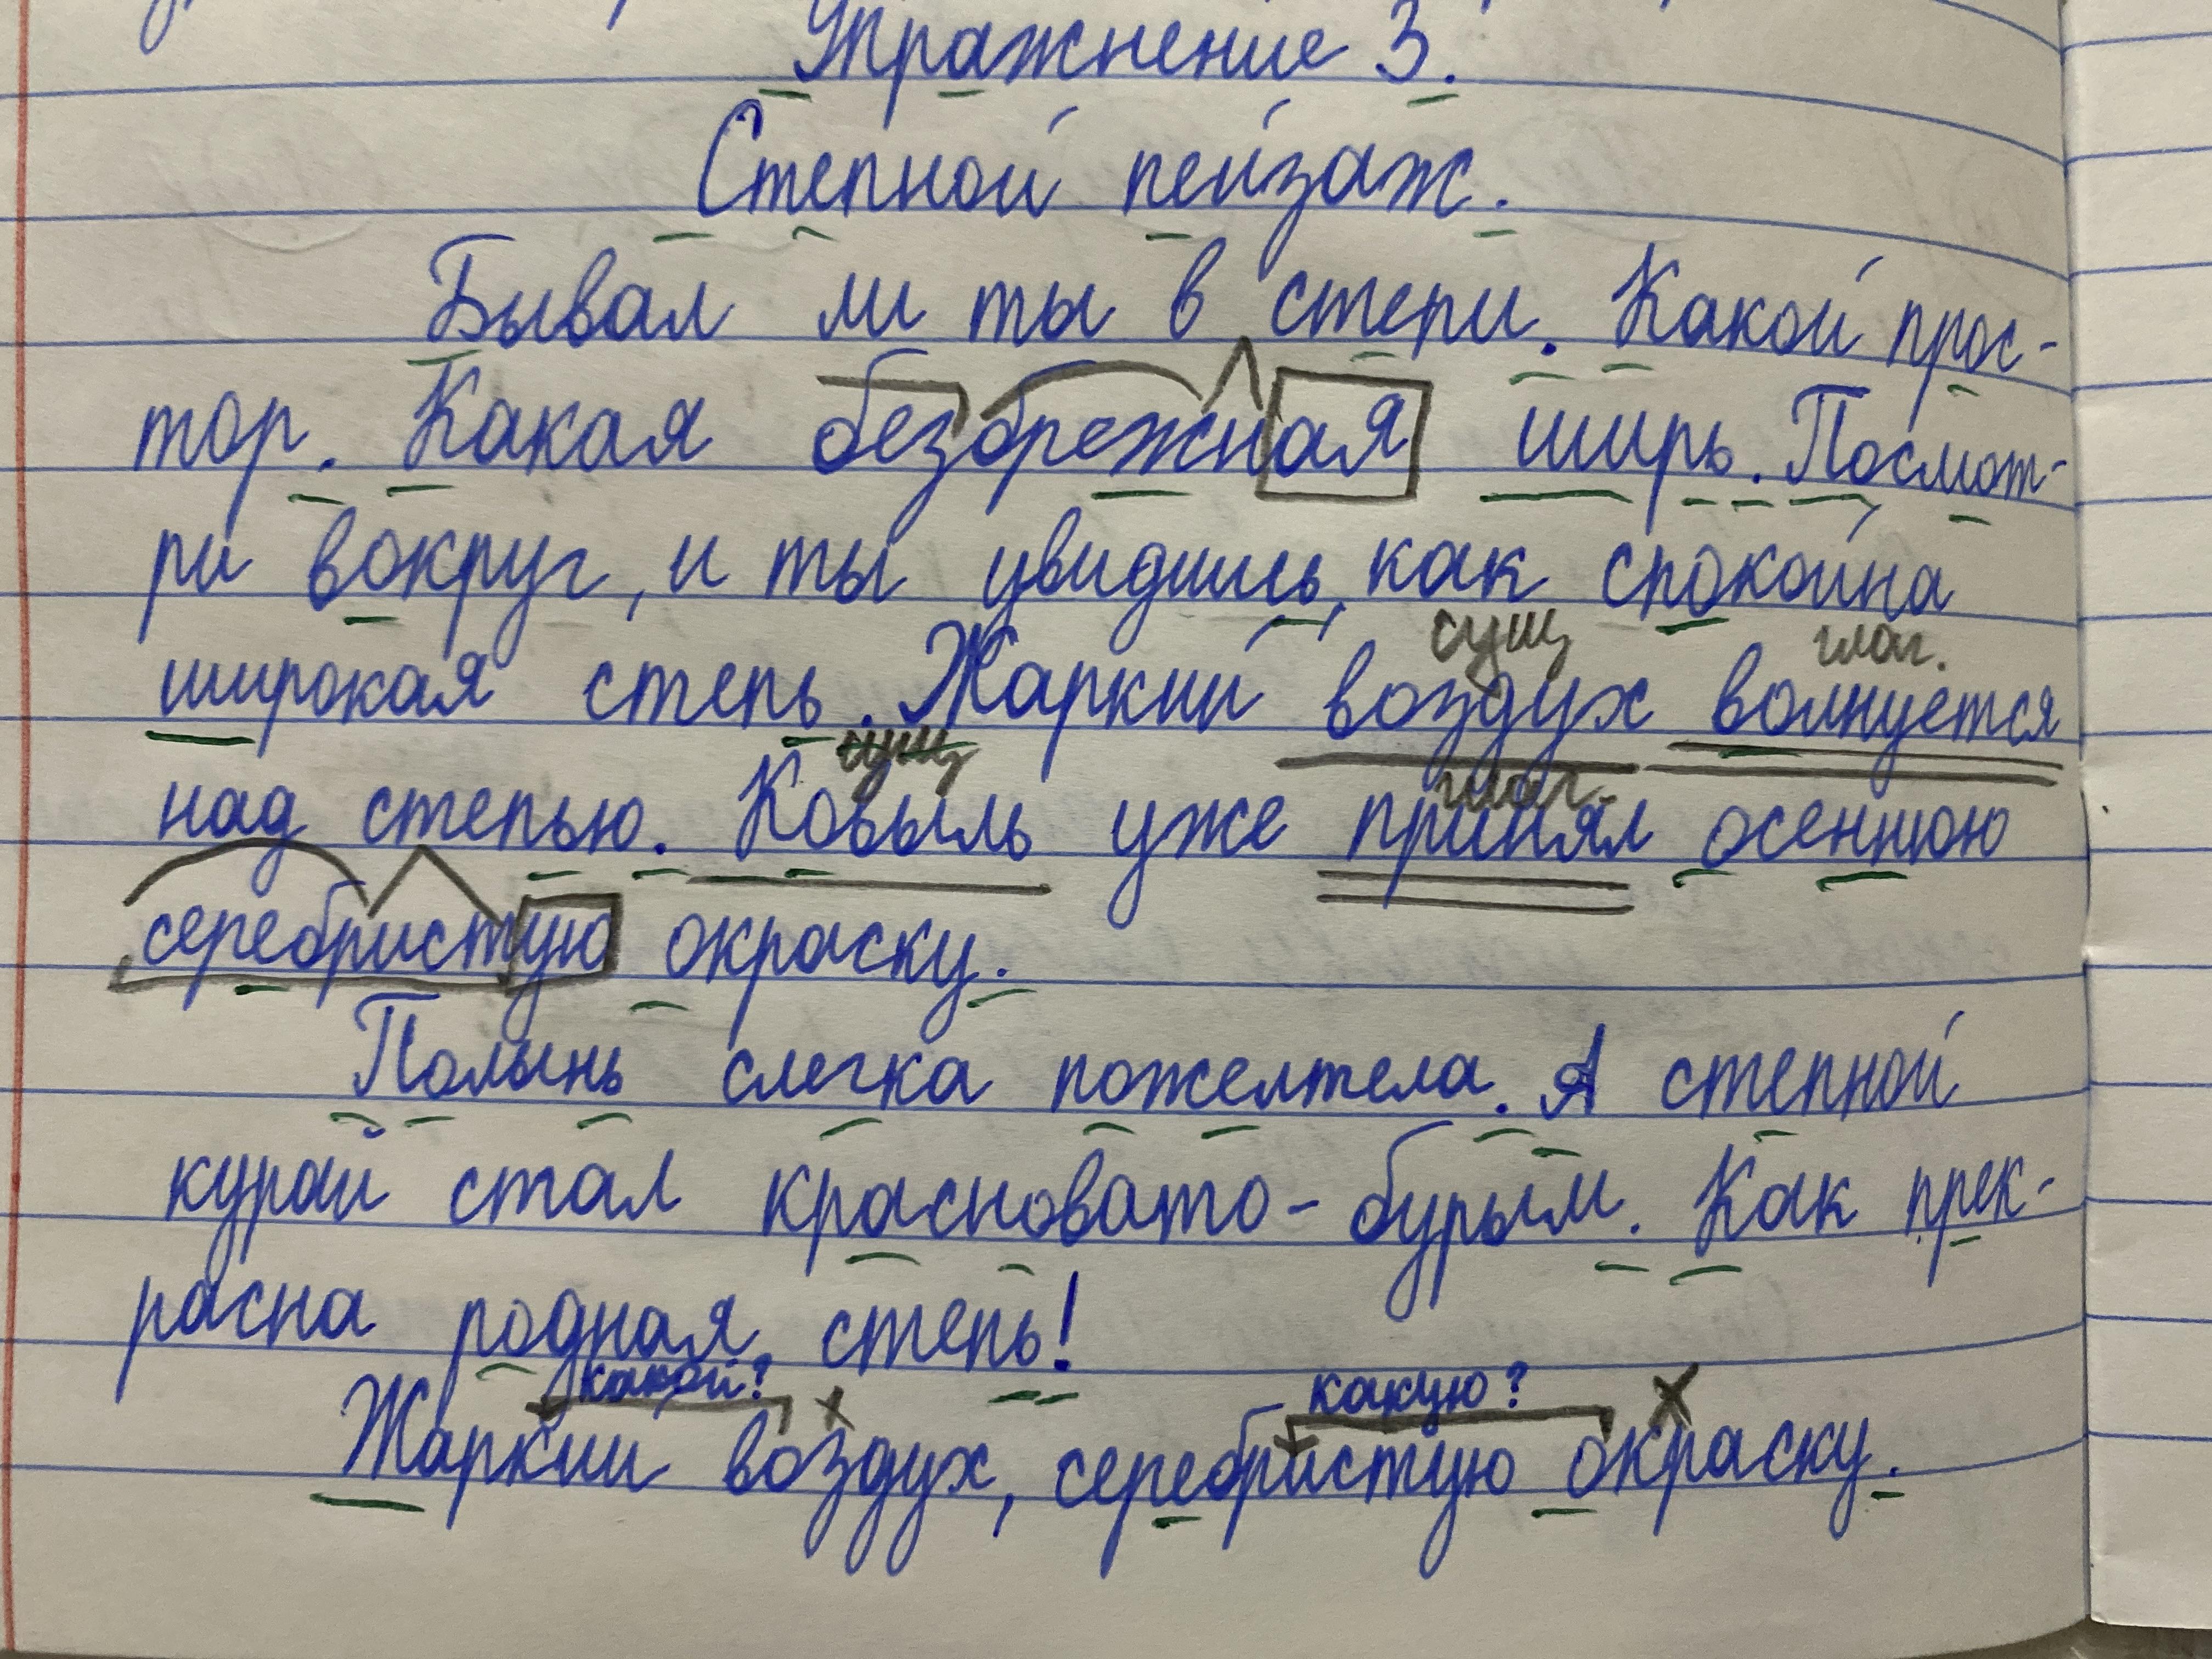 Упражнение 3.
Степной пейзаж.
Бывал ли ты в степи. Какой прос-
тор. Какая безбрежная ширь. Посмот-
ри вокруг, и ты увидишь, как спокойна
сущ глаг.
широкая степь. Жаркий воздух волнуется
сущ глаг.
над степью. Ковыль уже принял осеннюю
серебристую окраску.
Полынь слегка пожелтела. А степной
курай стал красновато-бурым. Как прек-
расна родная степь!
какой? какую?
Жаркии воздух, серебристую окраску.